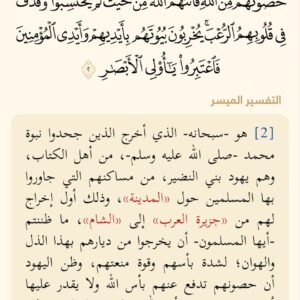 حُصُونُهُم مِّنَ ٱللَّهِ فَأَتَىٰهُمُ ٱللَّهُ مِنْ حَيْثُ لَمْ يَحْتَسِبُواْ وَقَذَفَ
فِي قُلُوبِهِمُ ٱلرُّعْبَۚ يُخْرِبُونَ بُيُوتَهُم بِأَيْدِيهِمْ وَأَيْدِي ٱلْمُؤْمِنِينَ
فَٱعْتَبِرُواْ يَٰٓأُوْلِي ٱلْأَبْصَٰرِ ٢
التفسير الميسر
[2] هو -سبحانه- الذي أخرج الذين جحدوا نبوة
محمد -صلى الله عليه وسلم-، من أهل الكتاب،
وهم يهود بني النضير، من مساكنهم التي جاوروا
بها المسلمين حول «المدينة»، وذلك أول إخراج
لهم من «جزيرة العرب» إلى «الشام»، ما ظننتم
-أيها المسلمون- أن يخرجوا من ديارهم بهذا الذل
والهوان؛ لشدة بأسهم وقوة منعتهم، وظن اليهود
أن حصونهم تدفع عنهم بأس الله ولا يقدر عليها